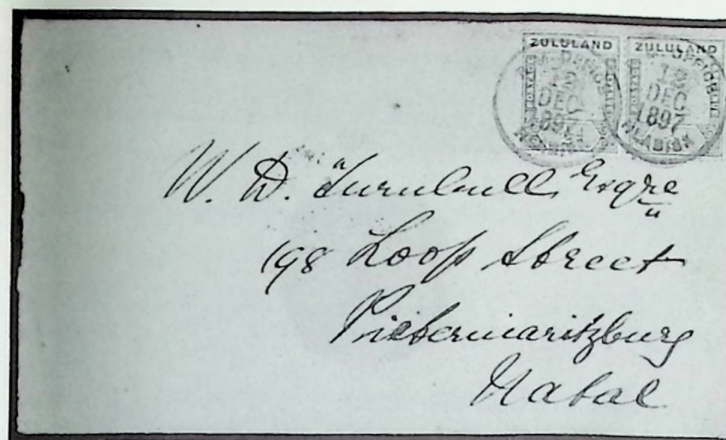 ZULULAND ZULULAND
12 12
DEC DEC
1897
HLABISA
W. D. Turnbull Esqre
198 Loop Street
Pietermaritzburg
Natal